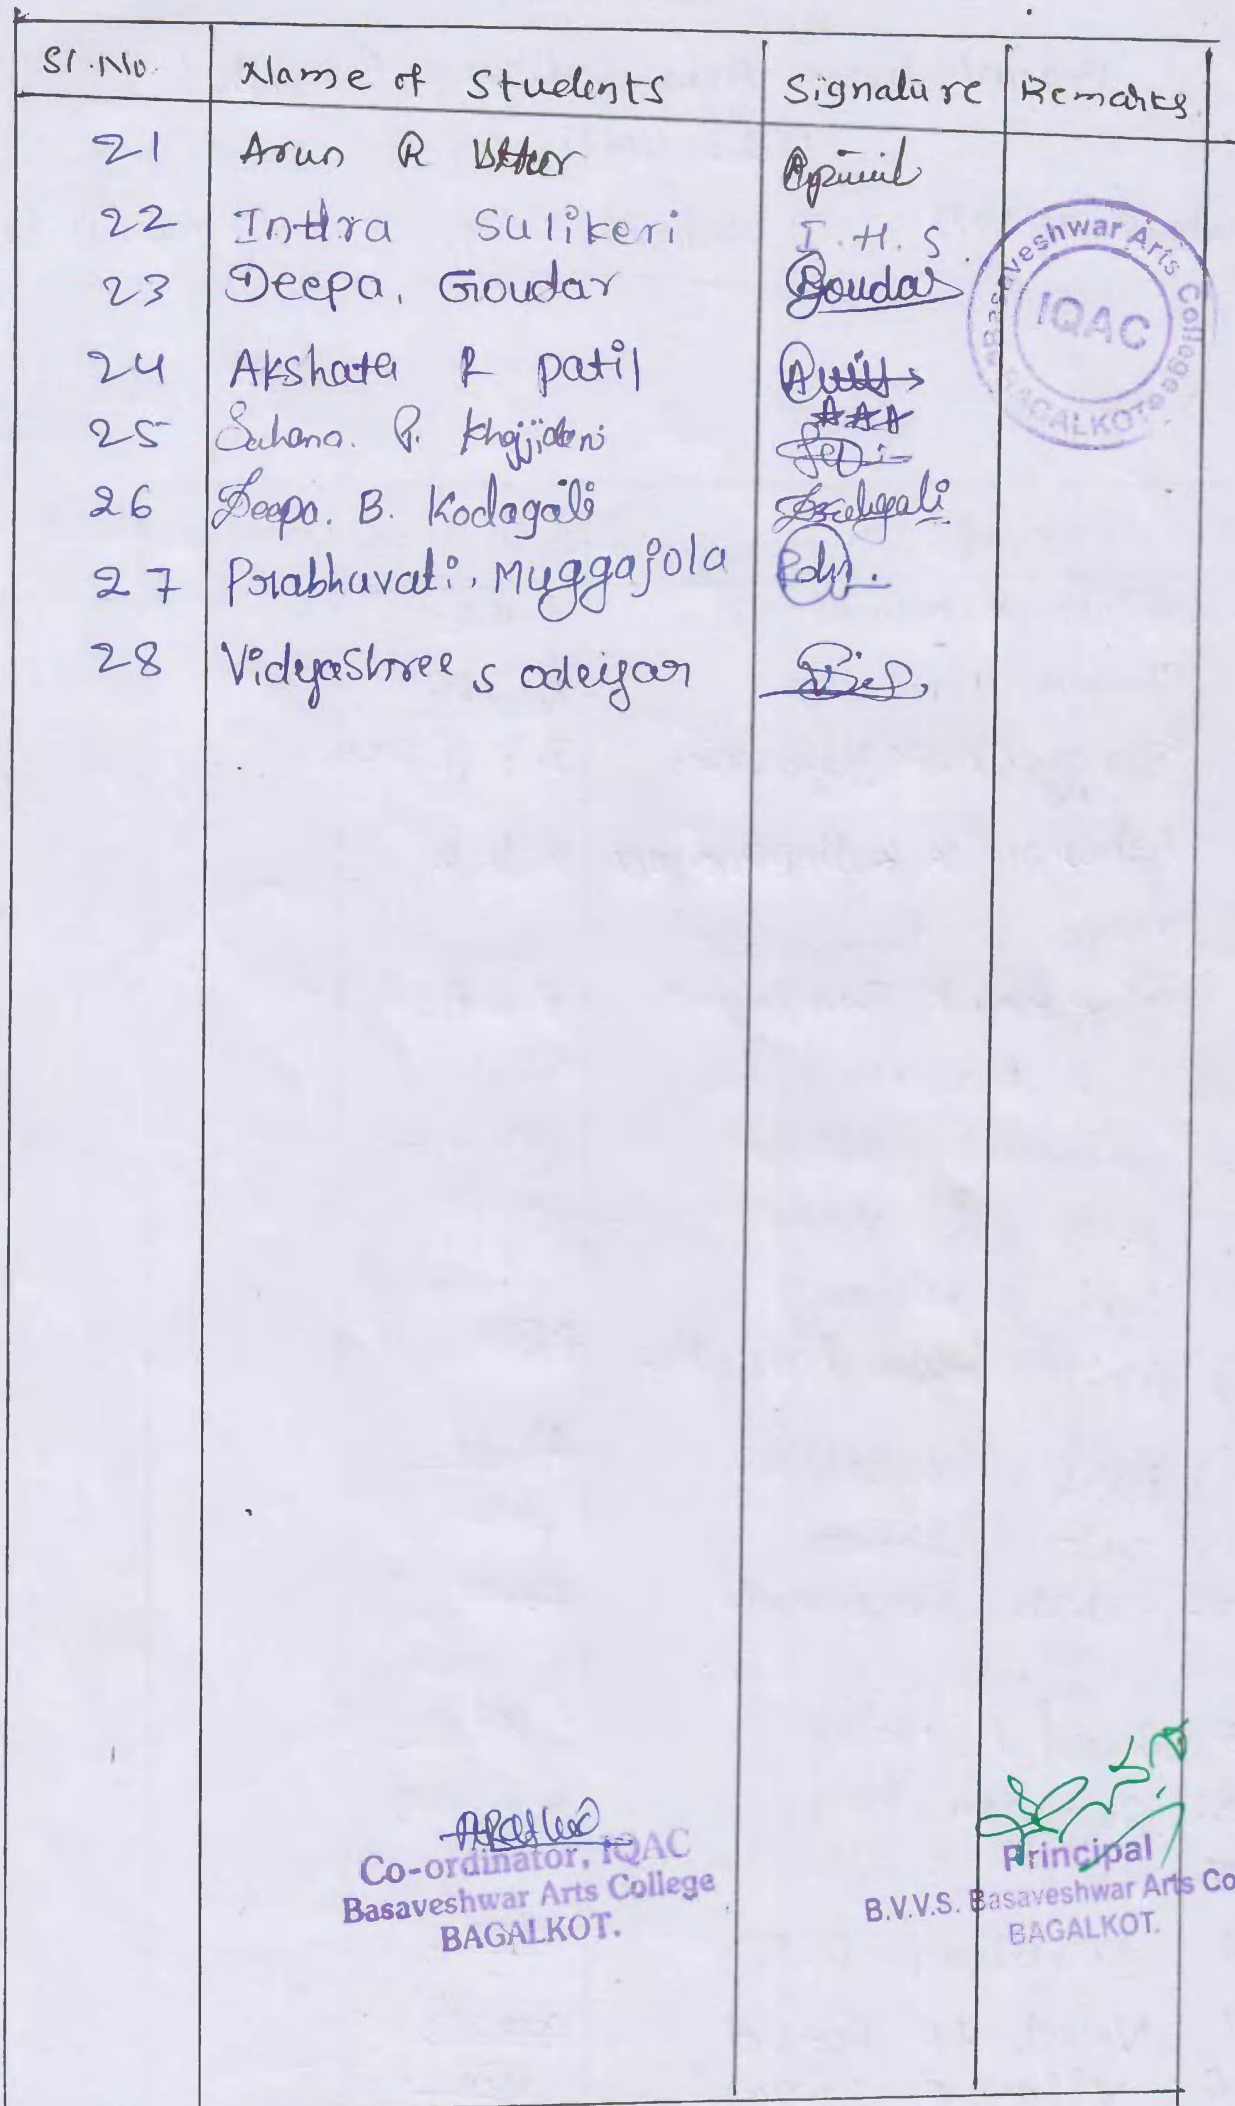 Sl.No. Name of Students Signature Remarks
21 Arun R
22 Indra Sulikeri I.H.S
23 Deepa, Goudar Goudar
24 Akshata R patil
25 Sahana. P.
26 Deepa. B. Kodagali
27 Prabhavati. Muggajola
28 Vidyashree s odeyar
Basaveshwar Arts College
IQAC
BAGALKOT
Co-ordinator, IQAC
Basaveshwar Arts College
BAGALKOT.
Principal
B.V.V.S. Basaveshwar Arts Co
BAGALKOT.